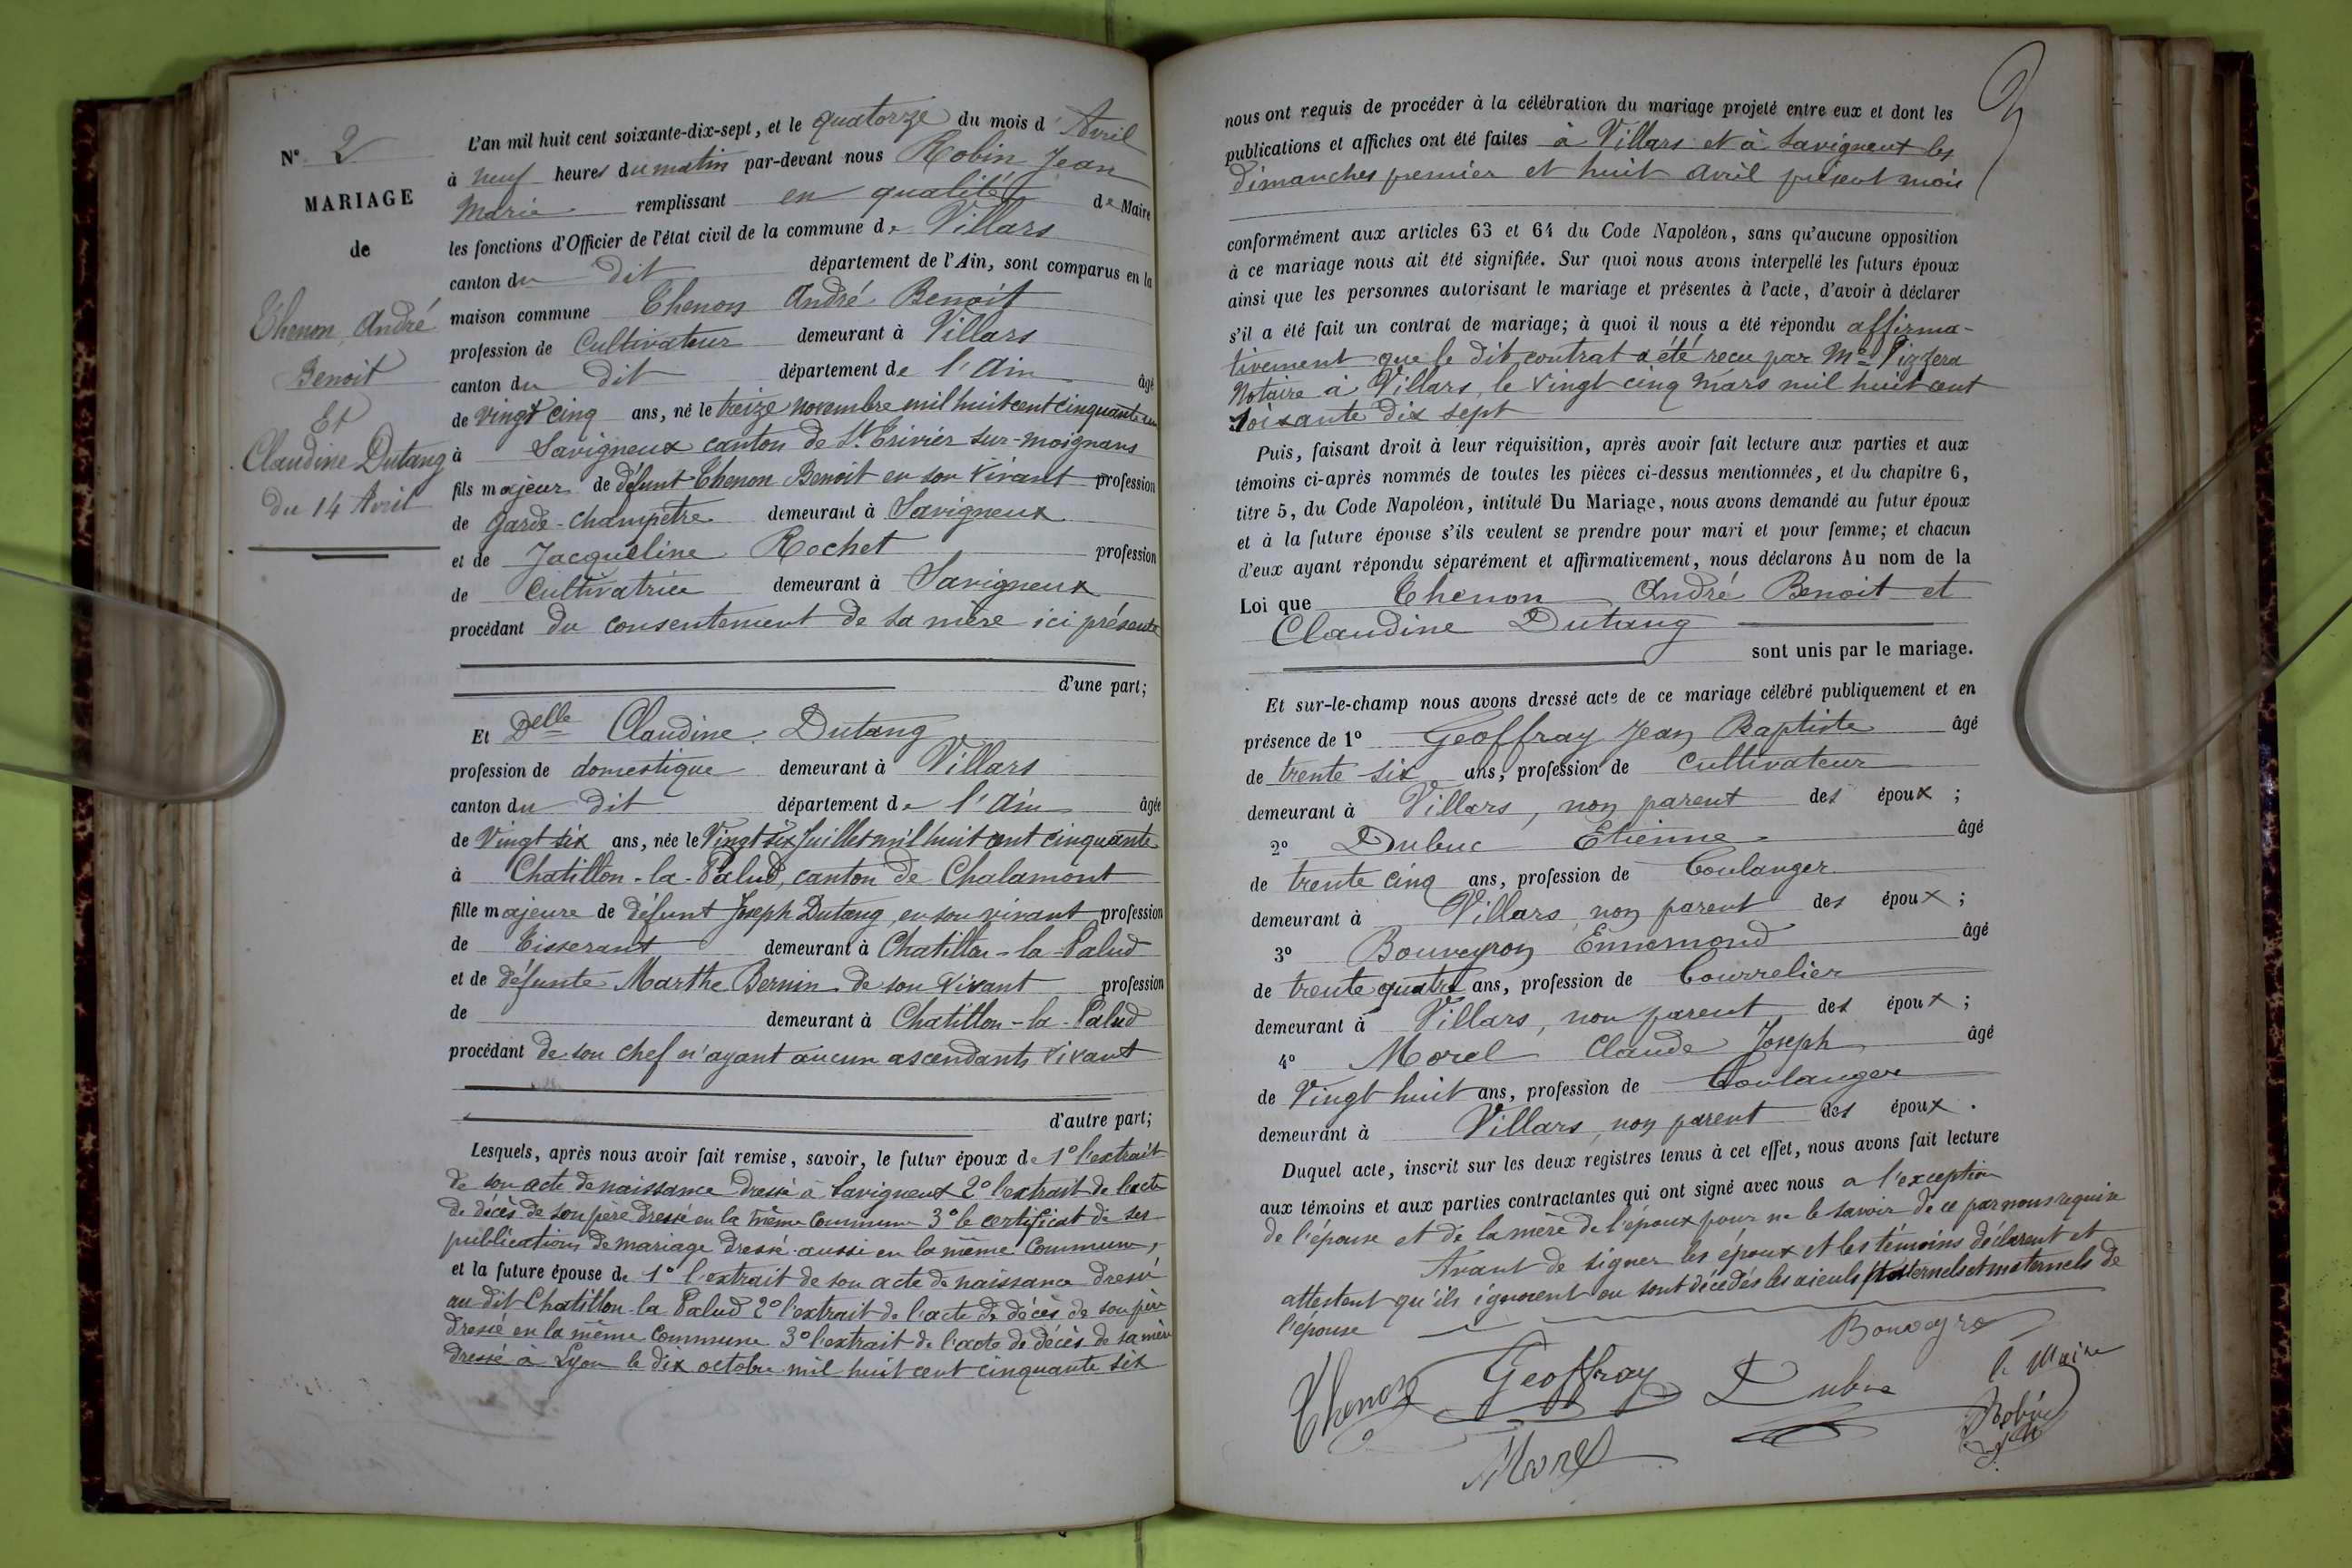 N° 2
MARIAGE
de
Thenon, André
Benoit
Et
Claudine Dutang
du 14 Avril
L'an mil huit cent soixante-dix-sept, et le quatorze du mois d'Avril
à neuf heures du matin par-devant nous Robin Jean
Marie remplissant en qualité de Maire
les fonctions d'Officier de l'état civil de la commune de Villars
canton du dit département de l'Ain, sont comparus en la
maison commune Thenon André Benoit
profession de Cultivateur demeurant à Villars
canton du dit département de l'Ain âgé
de vingt cinq ans, né le treize novembre mil huit cent cinquante un
à Savigneux canton de St. Trivier sur-moignans
fils majeur de défunt Thenon Benoit en son vivant profession
de Garde-champêtre demeurant à Savigneux
et de Jacqueline Rochet profession
de Cultivatrice demeurant à Savigneux
procédant du consentement de sa mère ici présente
d'une part;
Et Delle Claudine Dutang
profession de domestique demeurant à Villars
canton du dit département de l'Ain âgée
de Vingt six ans, née le Vingt six Juillet mil huit cent cinquante
à Chatillon-la-Palud, canton de Chalamont
fille majeure de défunt Joseph Dutang, en son vivant profession
de Tisserant demeurant à Chatillon-la-Palud
et de défunte Marthe Bernin de son vivant profession
de demeurant à Chatillon-la-Palud
procédant de son chef n'ayant aucun ascendants vivant
d'autre part;
Lesquels, après nous avoir fait remise, savoir, le futur époux de 1° l'extrait
de son acte de naissance dressé à Savigneux 2° l'extrait de l'acte
de décès de son père dressé en la même Commune 3° le certificat de ses
publications de mariage dressé aussi en la même Commune,
et la future épouse de 1° l'extrait de son acte de naissance dressé
au dit Chatillon-la Palud 2° l'extrait de l'acte de décès de son père
dressé en la même Commune 3° l'extrait de l'acte de décès de sa mère
dressé à Lyon le dix octobre mil huit cent cinquante six
nous ont requis de procéder à la célébration du mariage projeté entre eux et dont les
publications et affiches ont été faites à Villars et à Savigneux les
dimanches premier et huit avril présent mois
conformément aux articles 63 et 64 du Code Napoléon, sans qu'aucune opposition
à ce mariage nous ait été signifiée. Sur quoi nous avons interpellé les futurs époux
ainsi que les personnes autorisant le mariage et présentes à l'acte, d'avoir à déclarer
s'il a été fait un contrat de mariage; à quoi il nous a été répondu affirma-
tivement que le dit contrat a été reçu par Me Pizzera
Notaire à Villars, le vingt cinq Mars mil huit cent
soixante dix sept
Puis, faisant droit à leur réquisition, après avoir fait lecture aux parties et aux
témoins ci-après nommés de toutes les pièces ci-dessus mentionnées, et du chapitre 6,
titre 5, du Code Napoléon, intitulé Du Mariage, nous avons demandé au futur époux
et à la future épouse s'ils veulent se prendre pour mari et pour femme; et chacun
d'eux ayant répondu séparément et affirmativement, nous déclarons Au nom de la
Loi que Thenon André Benoit et
Claudine Dutang
sont unis par le mariage.
Et sur-le-champ nous avons dressé acte de ce mariage célébré publiquement et en
présence de 1° Geoffray Jean Baptiste âgé
de trente six ans, profession de Cultivateur
demeurant à Villars, non parent des époux ;
2° Dubuc Etienne âgé
de trente cinq ans, profession de Boulanger
demeurant à Villars, non parent des époux ;
3° Bouveyron Ennemond âgé
de trente quatre ans, profession de Bourrelier
demeurant à Villars, non parent des époux ;
4° Morel Claude Joseph âgé
de Vingt huit ans, profession de Boulanger
demeurant à Villars, non parent des époux .
Duquel acte, inscrit sur les deux registres tenus à cet effet, nous avons fait lecture
aux témoins et aux parties contractantes qui ont signé avec nous a l'exception
de l'épouse et de la mère de l'époux pour ne le savoir de ce par nous requise
Avant de signer les époux et les témoins déclarent et
attestent qu'ils ignorent ou sont décédés les aieuls paternels et maternels de
l'épouse
Bouveyron
Thenon Geoffray Dubuc le Maire
Morel Robin